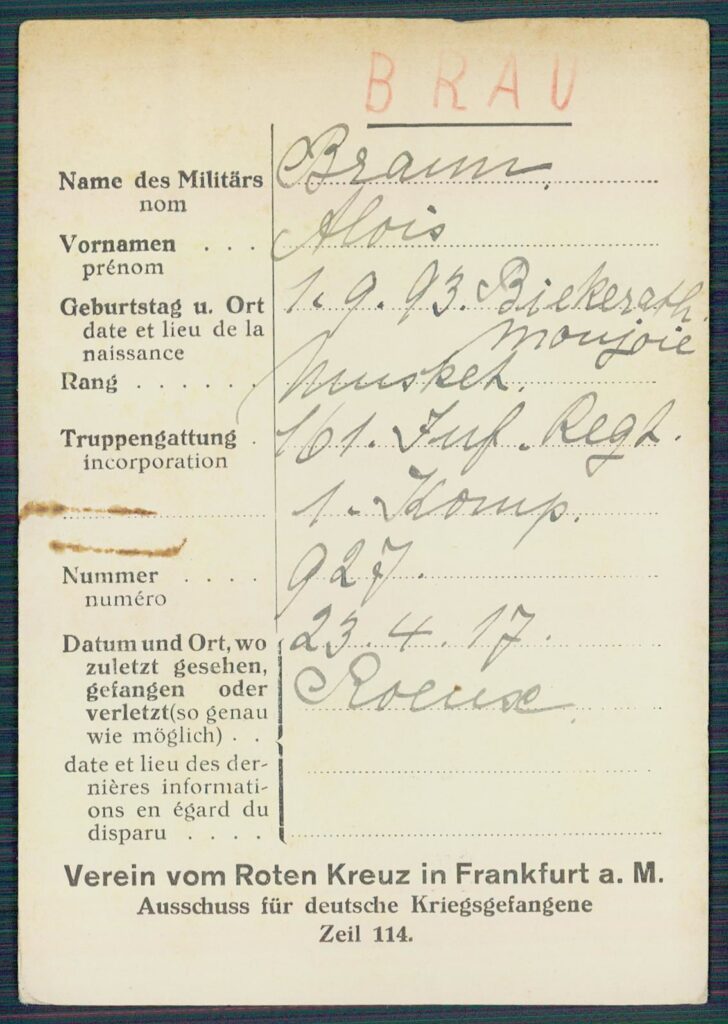 BRAU
Name des Militärs Braun.
nom
Vornamen . . . Alois
prénom
Geburtstag u. Ort 1. 9. 93. Biekerath
date et lieu de la Monjoie
naissance
Rang . . . . . . Musket.
Truppengattung . 161. Inf. Regt.
incorporation
1. Komp.
Nummer . . . . 927.
numéro
Datum und Ort, wo 23. 4. 17.
zuletzt gesehen,
gefangen oder Roeux
verletzt (so genau
wie möglich) . .
date et lieu des der-
nières informati-
ons en égard du
disparu . . . .
Verein vom Roten Kreuz in Frankfurt a. M.
Ausschuss für deutsche Kriegsgefangene
Zeil 114.